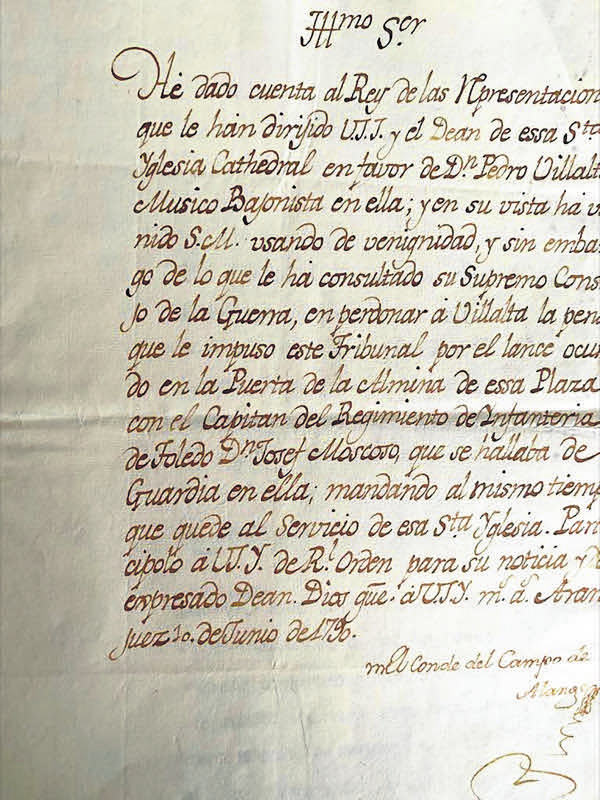 Illmo Ser
He dado cuenta al Rey de las Rpresentacion
que le han dirijido V.I.I. y el Dean de essa Sta
Yglesia Cathedral en favor de Dn Pedro Villalt
Musico Bajonista en ella; y en su vista ha ve
nido S.M. usando de venignidad, y sin embar
go de lo que le ha consultado su Supremo Conse
jo de la Guerra, en perdonar á Villalta la pena
que le impuso este Tribunal por el lance ocur
do en la Puerta de la Almina de essa Plaza
con el Capitan del Regimiento de Infanteria
de Toledo Dn Josef Moscoso, que se hallaba de
Guardia en ella; mandando al mismo tiemp
que quede al Servicio de esa Sta Yglesia. Par
cipolo á V.Y. de Rl Orden para su noticia y
expresado Dean. Dios gue. á V.Y. ms as Aran
juez 10. de Junio de 1790.
El Conde del Campo de
Alange